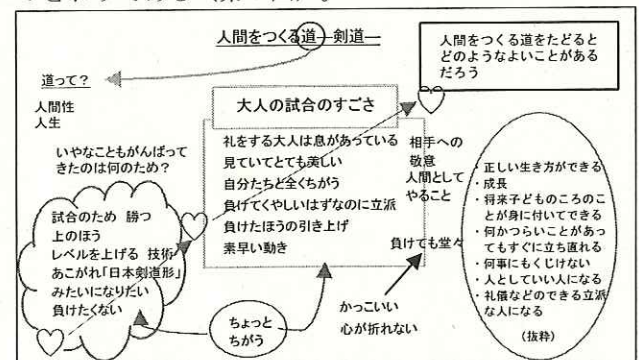 人間をつくる道―剣道―
人間をつくる道をたどると
どのようなよいことがある
だろう
道って?
人間性
人生
大人の試合のすごさ
礼をする大人は息があっている
見ていてとても美しい
自分たちと全くちがう
負けてくやしいはずなのに立派
負けたほうの引き上げ
素早い動き
相手への
敬意
人間として
やること
負けても堂々
いやなこともがんばって
きたのは何のため?
試合のため 勝つ
上のほう
レベルを上げる 技術
あこがれ「日本剣道形」
みたいになりたい
負けたくない
ちょっと
ちがう
かっこいい
心が折れない
・正しい生き方ができる
・成長
・将来子どものころのこ
とが身に付いてできる
・何かつらいことがあっ
てもすぐに立ち直れる
・何事にもくじけない
・人としていい人になる
・礼儀などのできる立派
な人になる
(抜粋)